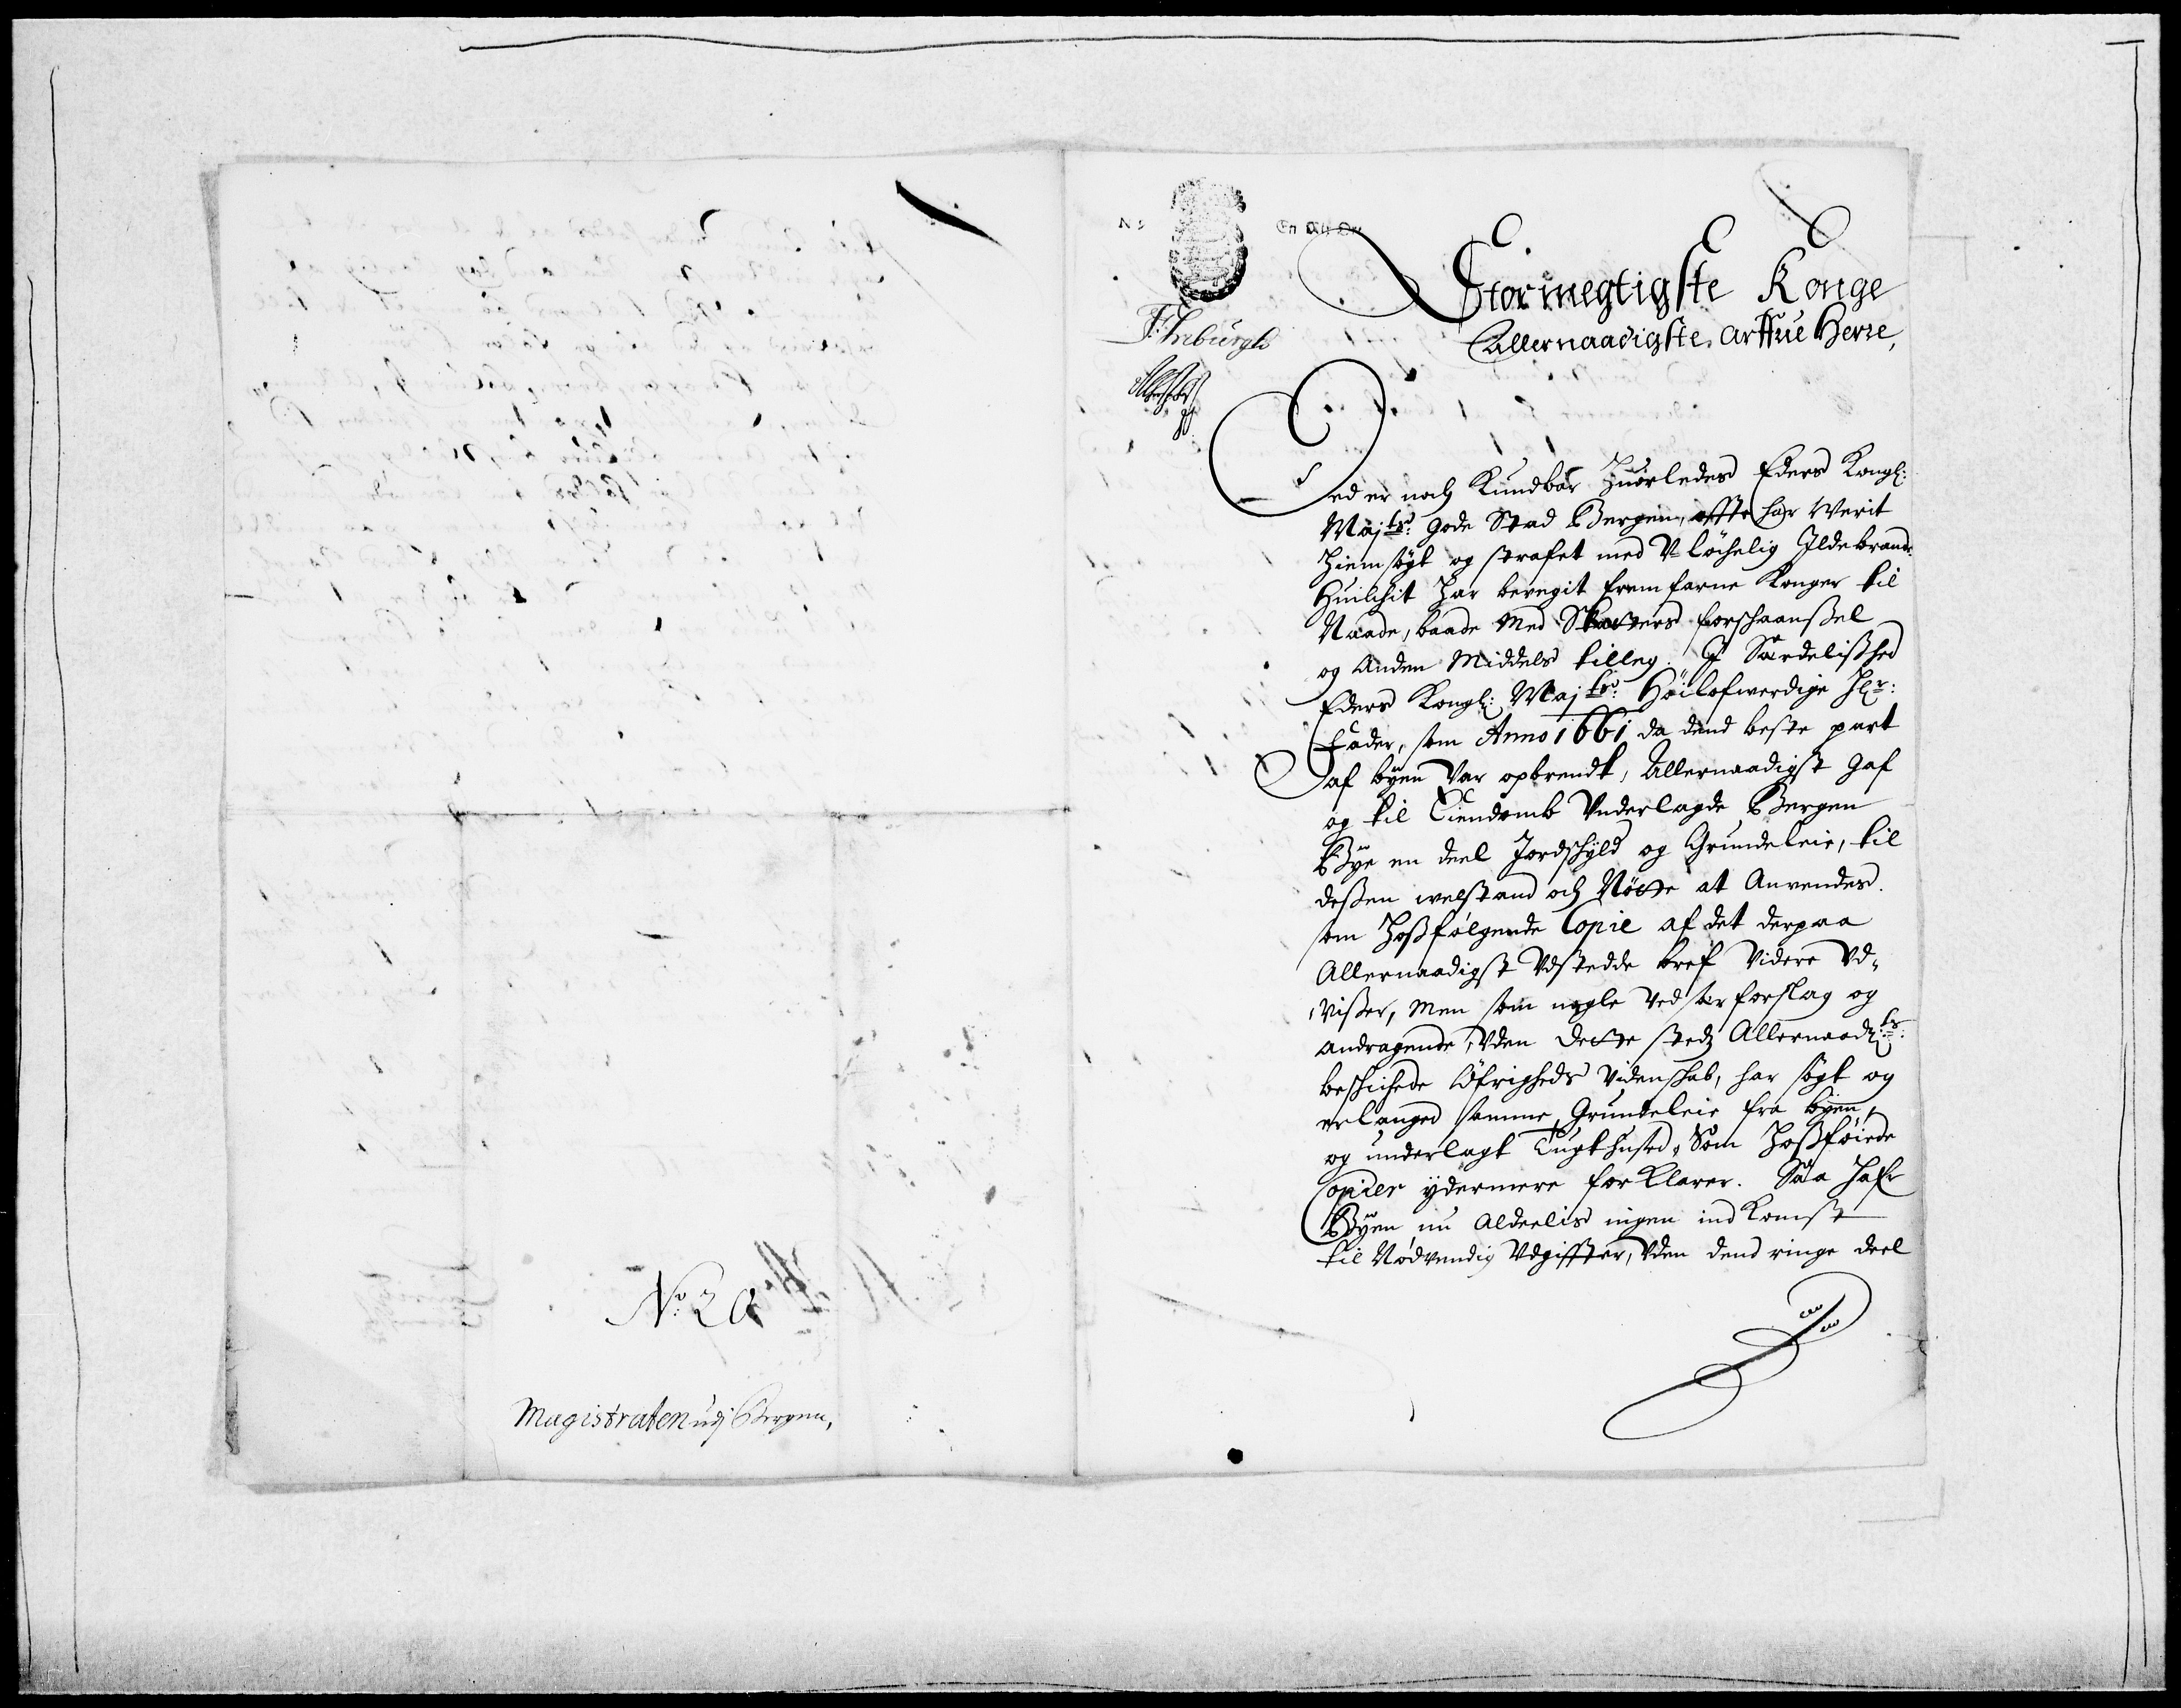 No: 20
Magistraten udj Bergen,
En
Stormegtigste Konge
Allernaadigste Arffue Herre,
Ded er noch Kundbar huorledes Eders Kongl:
Majts: gode Stad Bergen, offte har werit
hiemsøgt og straffet med V-løchelig Ildebrande
Huilchit har bevegit fremfarne Konger til
Naade, baade med Skatters forschaanßel
og anden Middels tilleg. I Særdelißhed
Eders Kongl: Majts: Høilofwerdige Hr:
Fader, som Anno 1661 da dend beste part
af byen var opbrendt, Allernaadigst gaf
og til Eiendomb Vnderlagde Bergen
Bye en deel Jordschyld og Grundeleie, til
deßen welstand och Nøtte at Anvendes.
som hoßfølgende Copie af det derpaa
Allernaadigst Vdstedde bref videre Vd-
vißer, Men som nogle ved forslag og
andragende, Vden dette stedz Allernaadts:
beschichede Øfrigheds videnschab, har søgt og
erlanged samme Grundeleie fra byen,
og underlagt Tugthused, Som hoßføiede
Copier ydermere forklarer. Saa hafr
Byen nu aldeelis ingen indkomst
til Nødvendig Vdgiffter, Vden dend ringe deel